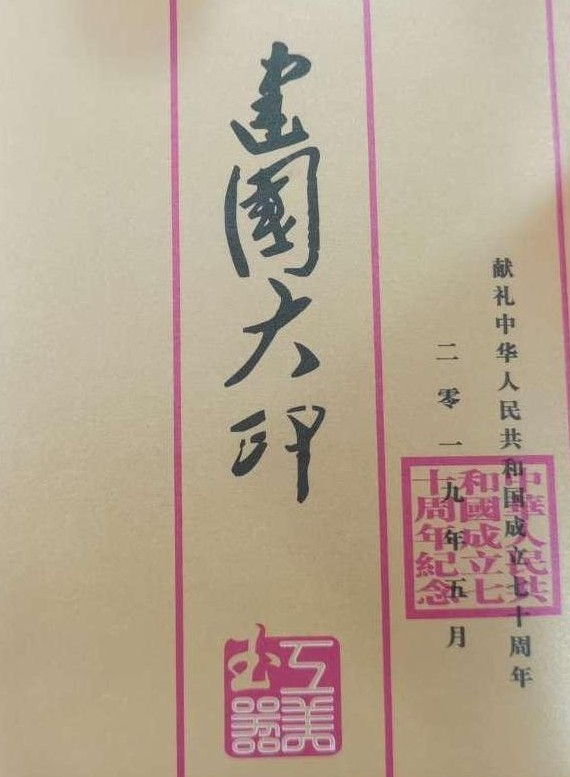 献礼中华人民共和国成立七十周年
二零一九年五月
中華人民共
和國成立七
十周年紀念
建國大印
工美
玉器